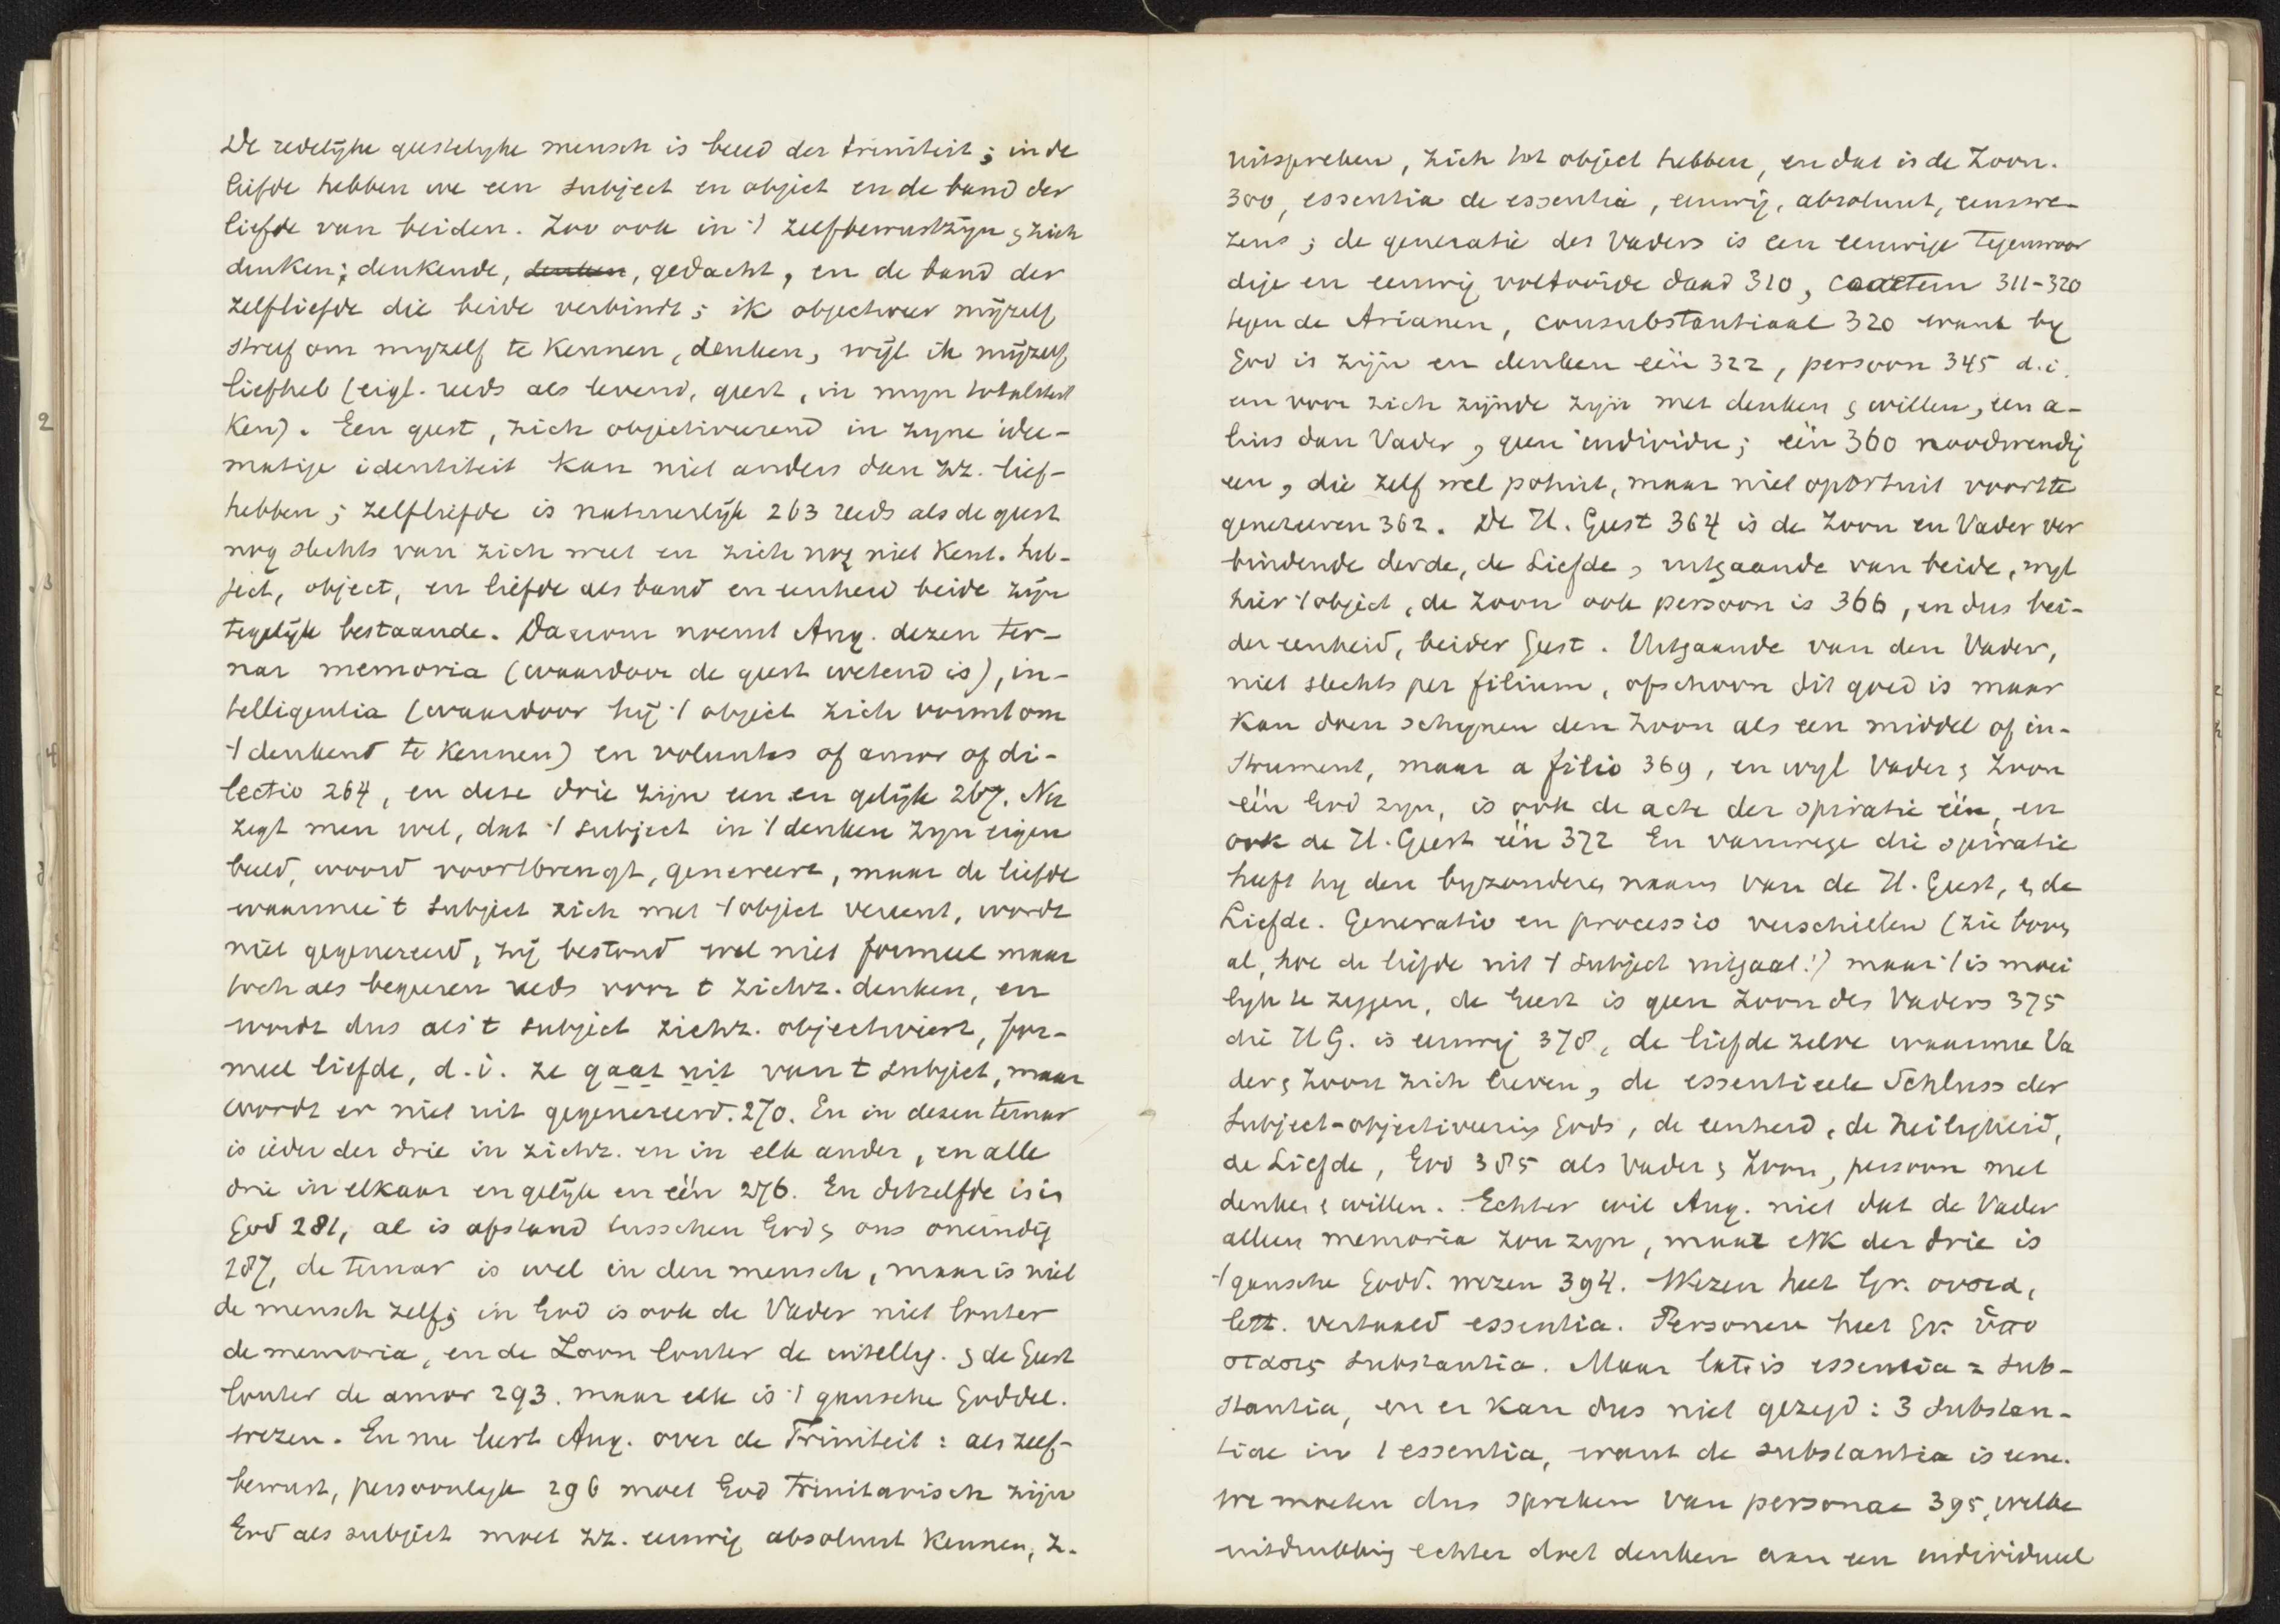 De redelijke geestelyke mensch is beeld der triniteit; in de
liefde hebben we een subject en object en de band der
liefde van beiden. Zoo ook in 't zelfbewustzijn & zich
denken; denkende, denken, gedacht, en de band der
zelfliefde die beide verbindt; ik objectiveer mijzelf
streef om myzelf te kennen, denken, wijl ik mijzelf
liefheb (eigl. reeds als levend, geest, in myn totaliteit
ken). Een geest, zich objectiveerend in zyne idee-
matige identiteit kan niet anders dan zz. lief-
hebben; zelfliefde is natuurlijk 263 reeds als de geest
nog slechts van zich weet en zich nog niet kent. Sub-
ject, object, en liefde als band en eenheid beide zijn
tegelijk bestaande. Daarom noemt Aug. dezen ter-
nar memoria (waardoor de geest wetend is), in-
telligentia (waardoor hij 't object zich vormt om
't denkend te kennen) en voluntas of amor of di-
lectio 264, en deze drie zijn een en gelijk 267. Nu
zegt men wel, dat 't subject in 't denken zyn eigen
beeld, woord voortbrengt, genereert, maar de liefde
waarmee 't subject zich met 't object vereent, wordt
niet gegenereerd, zij bestond wel niet formeel maar
toch als begeeren reeds voor t zichz. denken, en
wordt dus als 't subject zichz. objectiviert, for-
meel liefde, d.i. ze gaat uit van t subject, maar
wordt er niet uit gegenereerd. 270. En in dezen ternar
is ieder der drie in zichz. en in elk ander, en alle
drie in elkaar en gelijk en één 276. En ditzelfde is in
God 281, al is afstand tusschen God & ons oneindig
287, de ternar is wel in den mensch, maar is niet
de mensch zelf; in God is ook de Vader niet louter
de memoria, en de Zoon louter de intellig. & de Geest
louter de amor 293. maar elk is 't gansche Goddel.
wezen. En nu leert Aug. over de Triniteit: als zelf-
bewust, persoonlyk 296 moet God trinitarisch zijn
God als subject moet zz. eeuwig absoluut kennen, z.
uitspreken, zich tot object hebben, en dat is de Zoon.
300, essentia de essentia, eeuwig, absoluut, eenswe-
zens; de generatie des Vaders is een eeuwige tegenwoor
dige en eeuwig voltooide daad 310, coaetern 311-320
tegen de Arianen, consubstantiaal 320 want by
God is zijn en denken één 322, persoon 345 d.i.
een voor zich zijnde zijn met denken & willen, een a-
lius dan Vader, geen individu; één 360 noodwendig
een, die zelf wel potuit, maar niet oportuit voort te
genereeren 362. De H. Geest 364 is de Zoon en Vader ver
bindende derde, de Liefde, uitgaande van beide, wyl
hier 't object, de Zoon ook persoon is 366, en dus bei-
der eenheid, beider Geest. Uitgaande van den Vader,
niet slechts per filium, ofschoon dit goed is maar
kan doen schynen den Zoon als een middel of in-
strument, maar a filio 369, en wyl Vader & Zoon
één God zyn, is ook de acte der spiratie één, en
ook de H. Geest één 372 En vanwege die spiratie
heeft hy den byzonderen naam van de H. Geest, & de
Liefde. Generatio en processio verschillen (zie boven
al, hoe de liefde uit 't subject uitgaat!) maar 't is moei
lyk te zeggen, de Geest is geen Zoon des Vaders 375
die H.G. is eeuwig 378, de liefde zelve waarmee Va
der & Zoon zich lieven, de essentieele Schluss der
Subject-objectiveering Gods, de eenheid, de heiligheid,
de Liefde, God 385 als Vader & Zoon, persoon met
denken & willen. Echter wil Aug. niet dat de Vader
alleen memoria zou zyn, maar elk der drie is
't gansche Godd. wezen 394. Wezen heet Gr. ουσια,
lett. vertaald essentia. Personen heet Gr. ὑπο
στασις substantia. Maar lat. is essentia = sub-
stantia, en er kan dus niet gezegd: 3 substan-
tiae in 1 essentia, want de substantia is eene.
we moeten dus spreken van personae 395, welke
uitdrukking echter doet denken aan een individueel